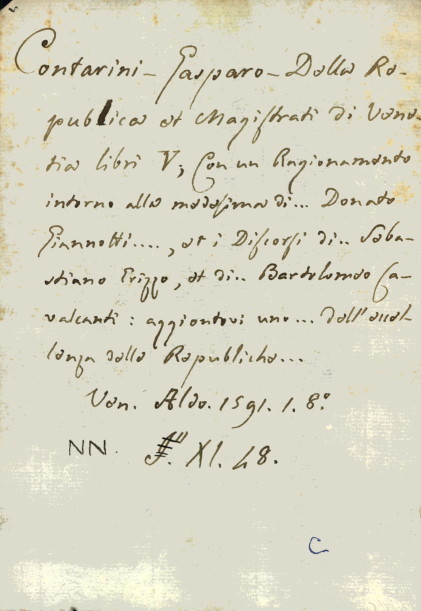 Contarini - Gasparo - Della Re-
publica et Magistrati di Vene-
tia libri V, Con un Ragionamento
intorno alla medesima di... Donato
Giannotti...., et i Discorsi di.. Seba-
stiano Erizzo, et di.. Bartolomeo Ca-
valcanti: aggiontovi uno... dell'eccel-
lenza delle Republiche...
Ven. Aldo. 1591. 1. 8.º
NN. XI. 48.
C